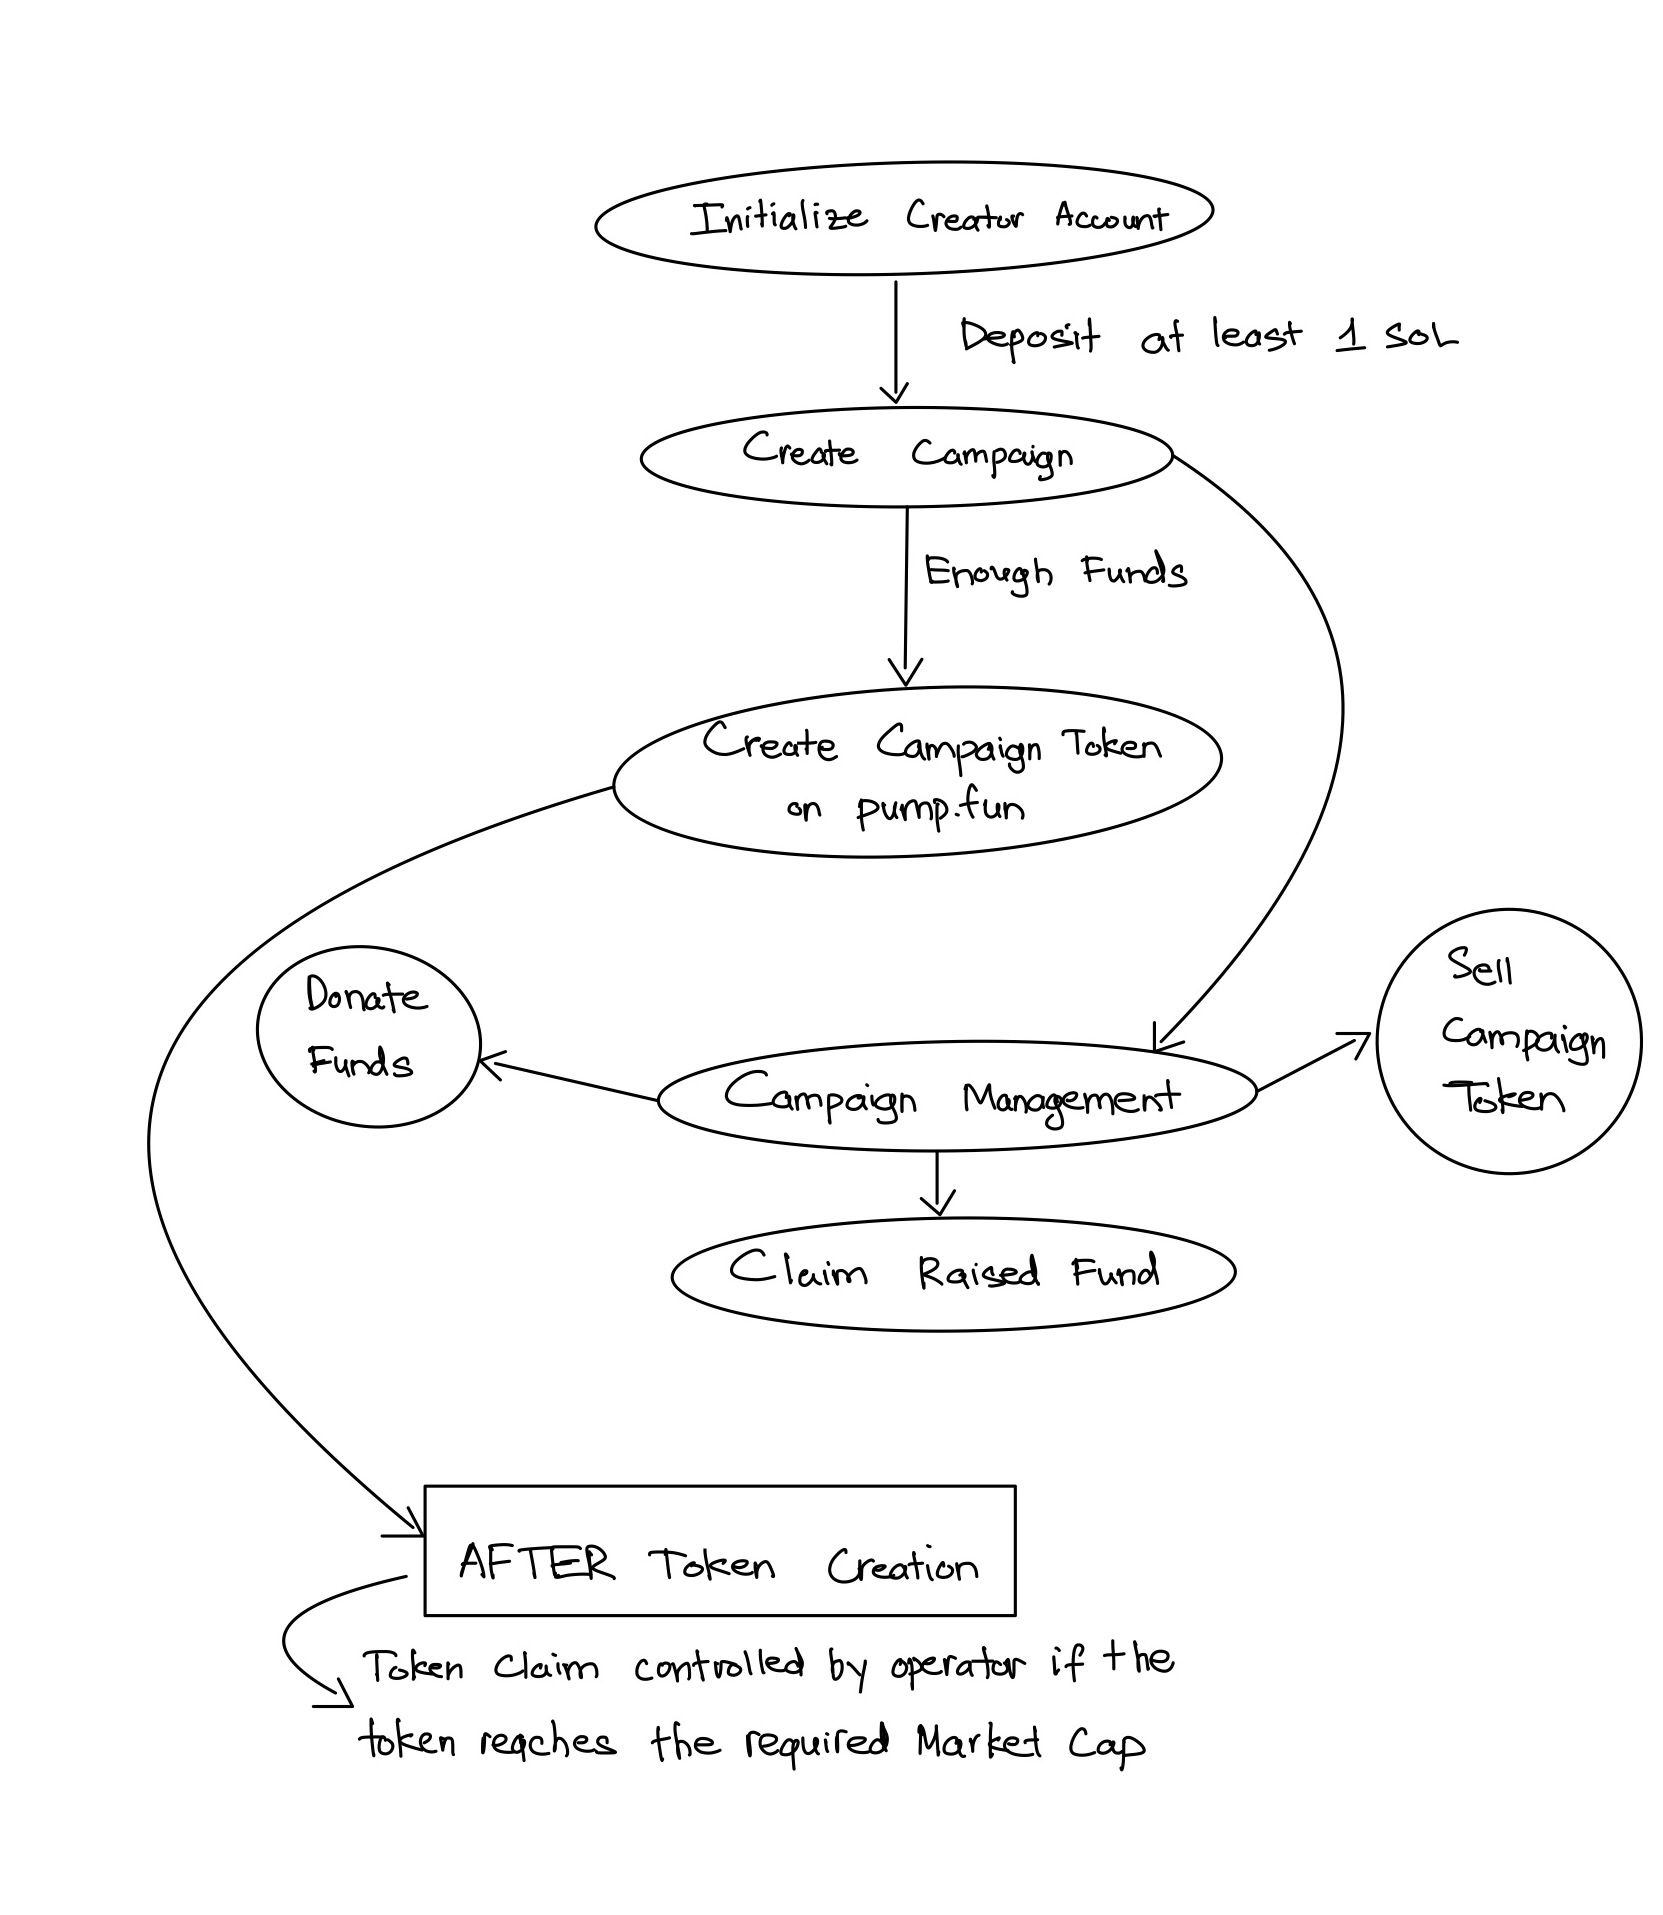 Initialize Creator Account
Deposit at least 1 SOL
Create Campaign
Enough Funds
Create Campaign Token
on pump.fun
Donate
Funds
Sell
Campaign
Token
Campaign Management
Claim Raised Fund
AFTER Token Creation
Token Claim controlled by operator if the
token reaches the required Market Cap